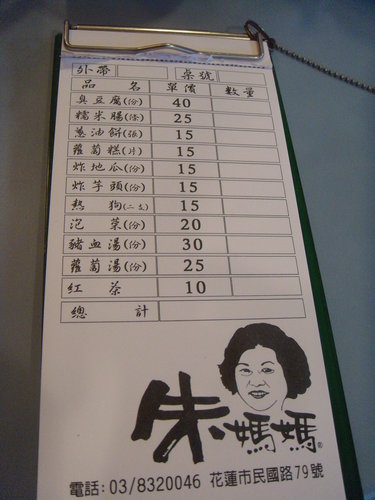 外帶 桌號
品名 單價 數量
臭豆腐(份) 40
糯米腸(條) 25
蔥油餅(張) 15
蘿蔔糕(片) 15
炸地瓜(份) 15
炸芋頭(份) 15
熱狗(二支) 15
泡菜(份) 20
豬血湯(份) 30
蘿蔔湯(份) 25
紅茶 10
總計
朱媽媽®
電話: 03/8320046 花蓮市民國路79號